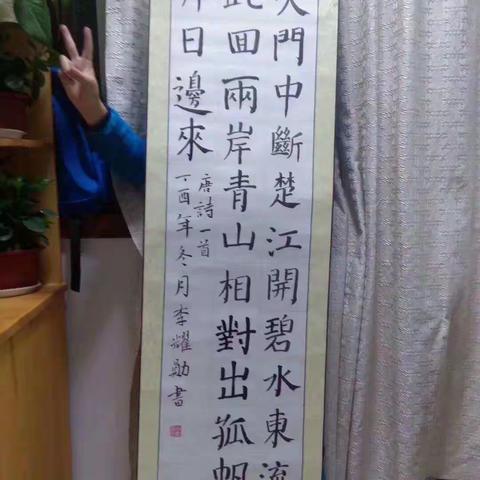 天門中斷楚江開碧水東流
此回兩岸青山相對出孤帆
片日邊來
唐詩一首
丁酉年冬月李耀勛書